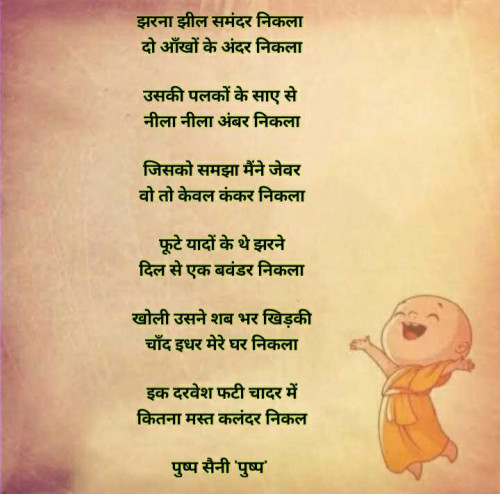 झरना झील समंदर निकला
दो आँखों के अंदर निकला
उसकी पलकों के साए से
नीला नीला अंबर निकला
जिसको समझा मैंने जेवर
वो तो केवल कंकर निकला
फूटे यादों के थे झरने
दिल से एक बवंडर निकला
खोली उसने शब भर खिड़की
चाँद इधर मेरे घर निकला
इक दरवेश फटी चादर में
कितना मस्त कलंदर निकल
पुष्प सैनी 'पुष्प'